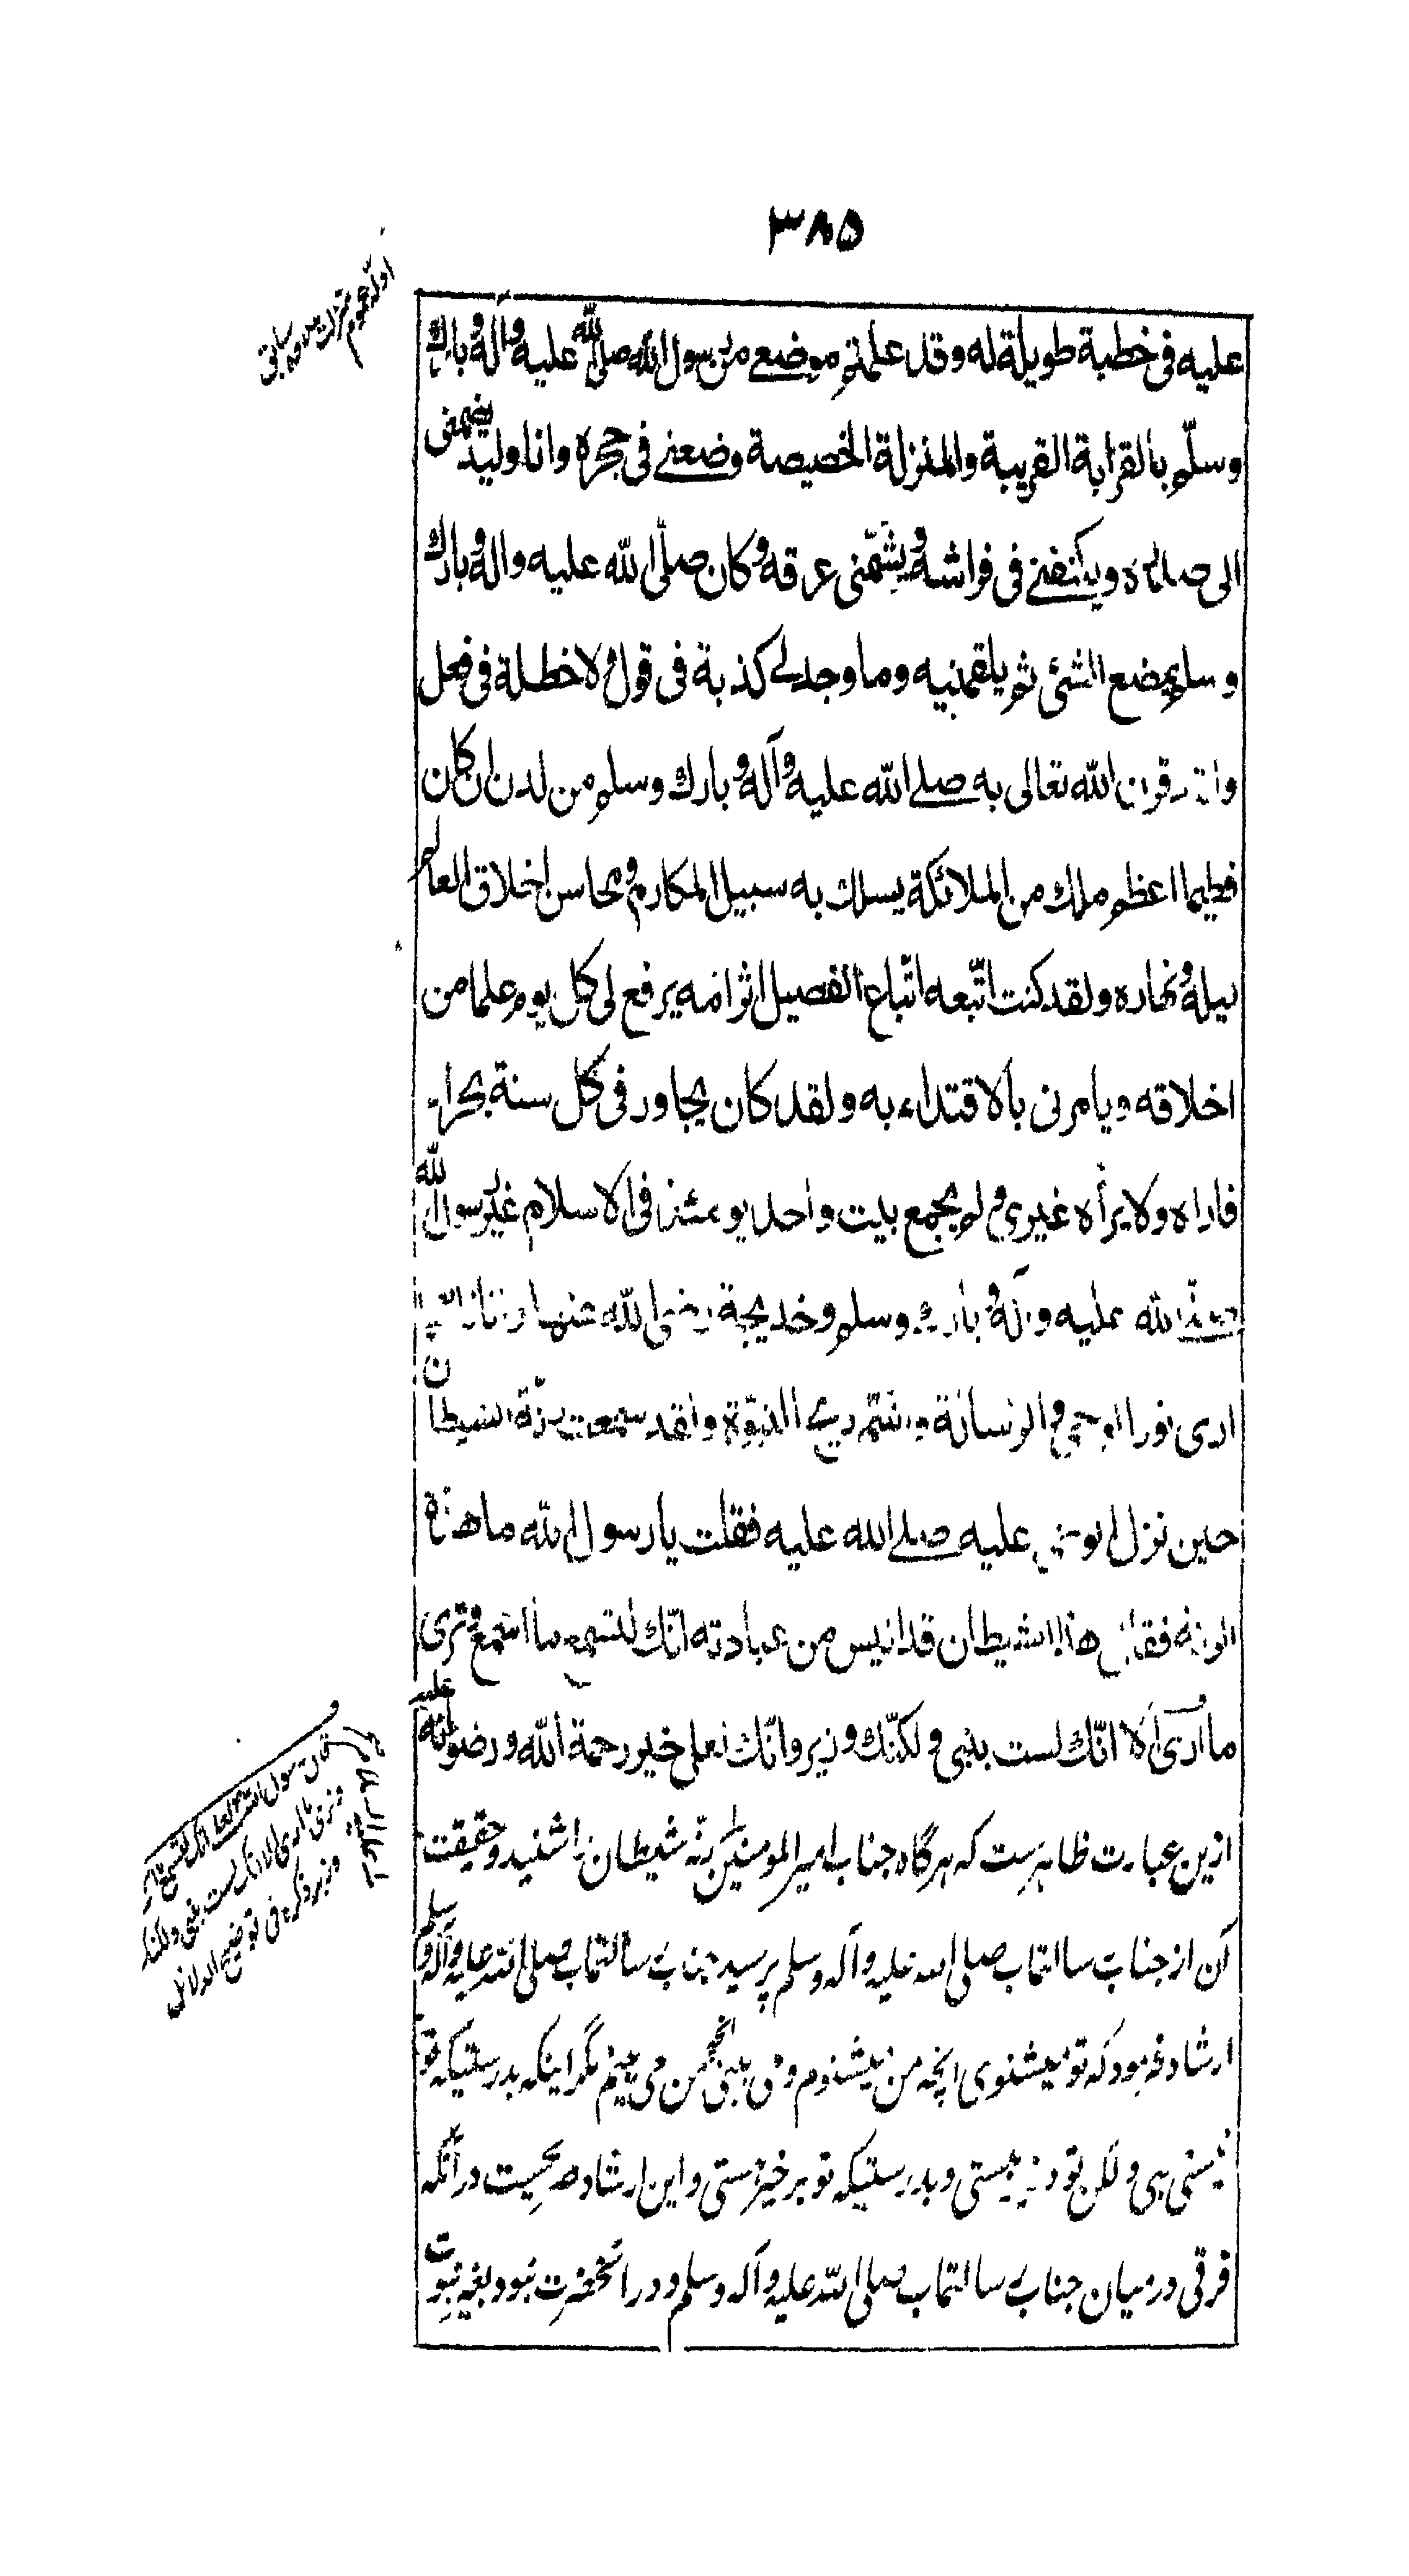 ۳۸۵
عليه فى خطبة طويلة له وقد علمتم موضعى من رسول الله صلى الله عليه وآله وبارك
وسلّم بالقرابة القريبة والمنزلة الخصيصة وضعنى فى حجره وانا وليد يضمنى
الى صدره ويكنفنى فى فراشه ويشمّنى عرقه وكان صلى الله عليه واله وبارك
وسلم يمضع الشئ ثم يلقمنيه وما وجد لى كذبة فى قول ولا خطلة فى فعل
ولقد قرن الله تعالى به صلى الله عليه وآله وبارك وسلم من لدن ان كان
فطيما اعظم ملك من الملائكة يسلك به سبيل المكارم ومحاسن اخلاق العالم
ليله ونهاره ولقد كنت اتّبعه اتّباع الفصيل اثر امه يرفع لى كل يوم علما من
اخلاقه ويامرنى بالاقتداء به ولقد كان يجاور فى كل سنة بحراء
فاراه ولا يراه غيرى ولم يجمع بيت واحد يومئذ فى الاسلام غير رسول الله
صلى الله عليه وآله وبارك وسلم وخديجة رضى الله عنها وانا ثالثهما
ارى نور الوحى والرسالة واشتم ريح النبوّة ولقد سمعت رنّة الشيطان
حين نزل الوحى عليه صلى الله عليه فقلت يا رسول الله ما هذه
الرنة فقال هذا الشيطان قد ايس من عبادته انّك لتسمع ما اسمع وترى
ما ارى الا انّك لست بنبى ولكنّك وزير وانّك لعلى خير رحمة الله ورضوانه عليه
ازين عبارت ظاهرست كه هرگاه جناب امير المومنين رنّه شيطان را شنيد وحقيقت
آن از جناب رسالتماب صلى الله عليه وآله وسلم پرسيد جناب رسالتماب صلى الله عليه وآله وسلم
ارشاد فرمود كه تو ميشنوى انچه من ميشنوم ومى بينى انچه من مى بينم مگر اينكه بدرستيكه تو
نيستى نبى ولكن تو وزير هستى وبدرستيكه تو بر خير هستى واين ارشاد صريحست در آنكه
فرقى درميان جناب رسالتماب صلى الله عليه وآله وسلم ودر آنحضرت نبود بغير نبوت